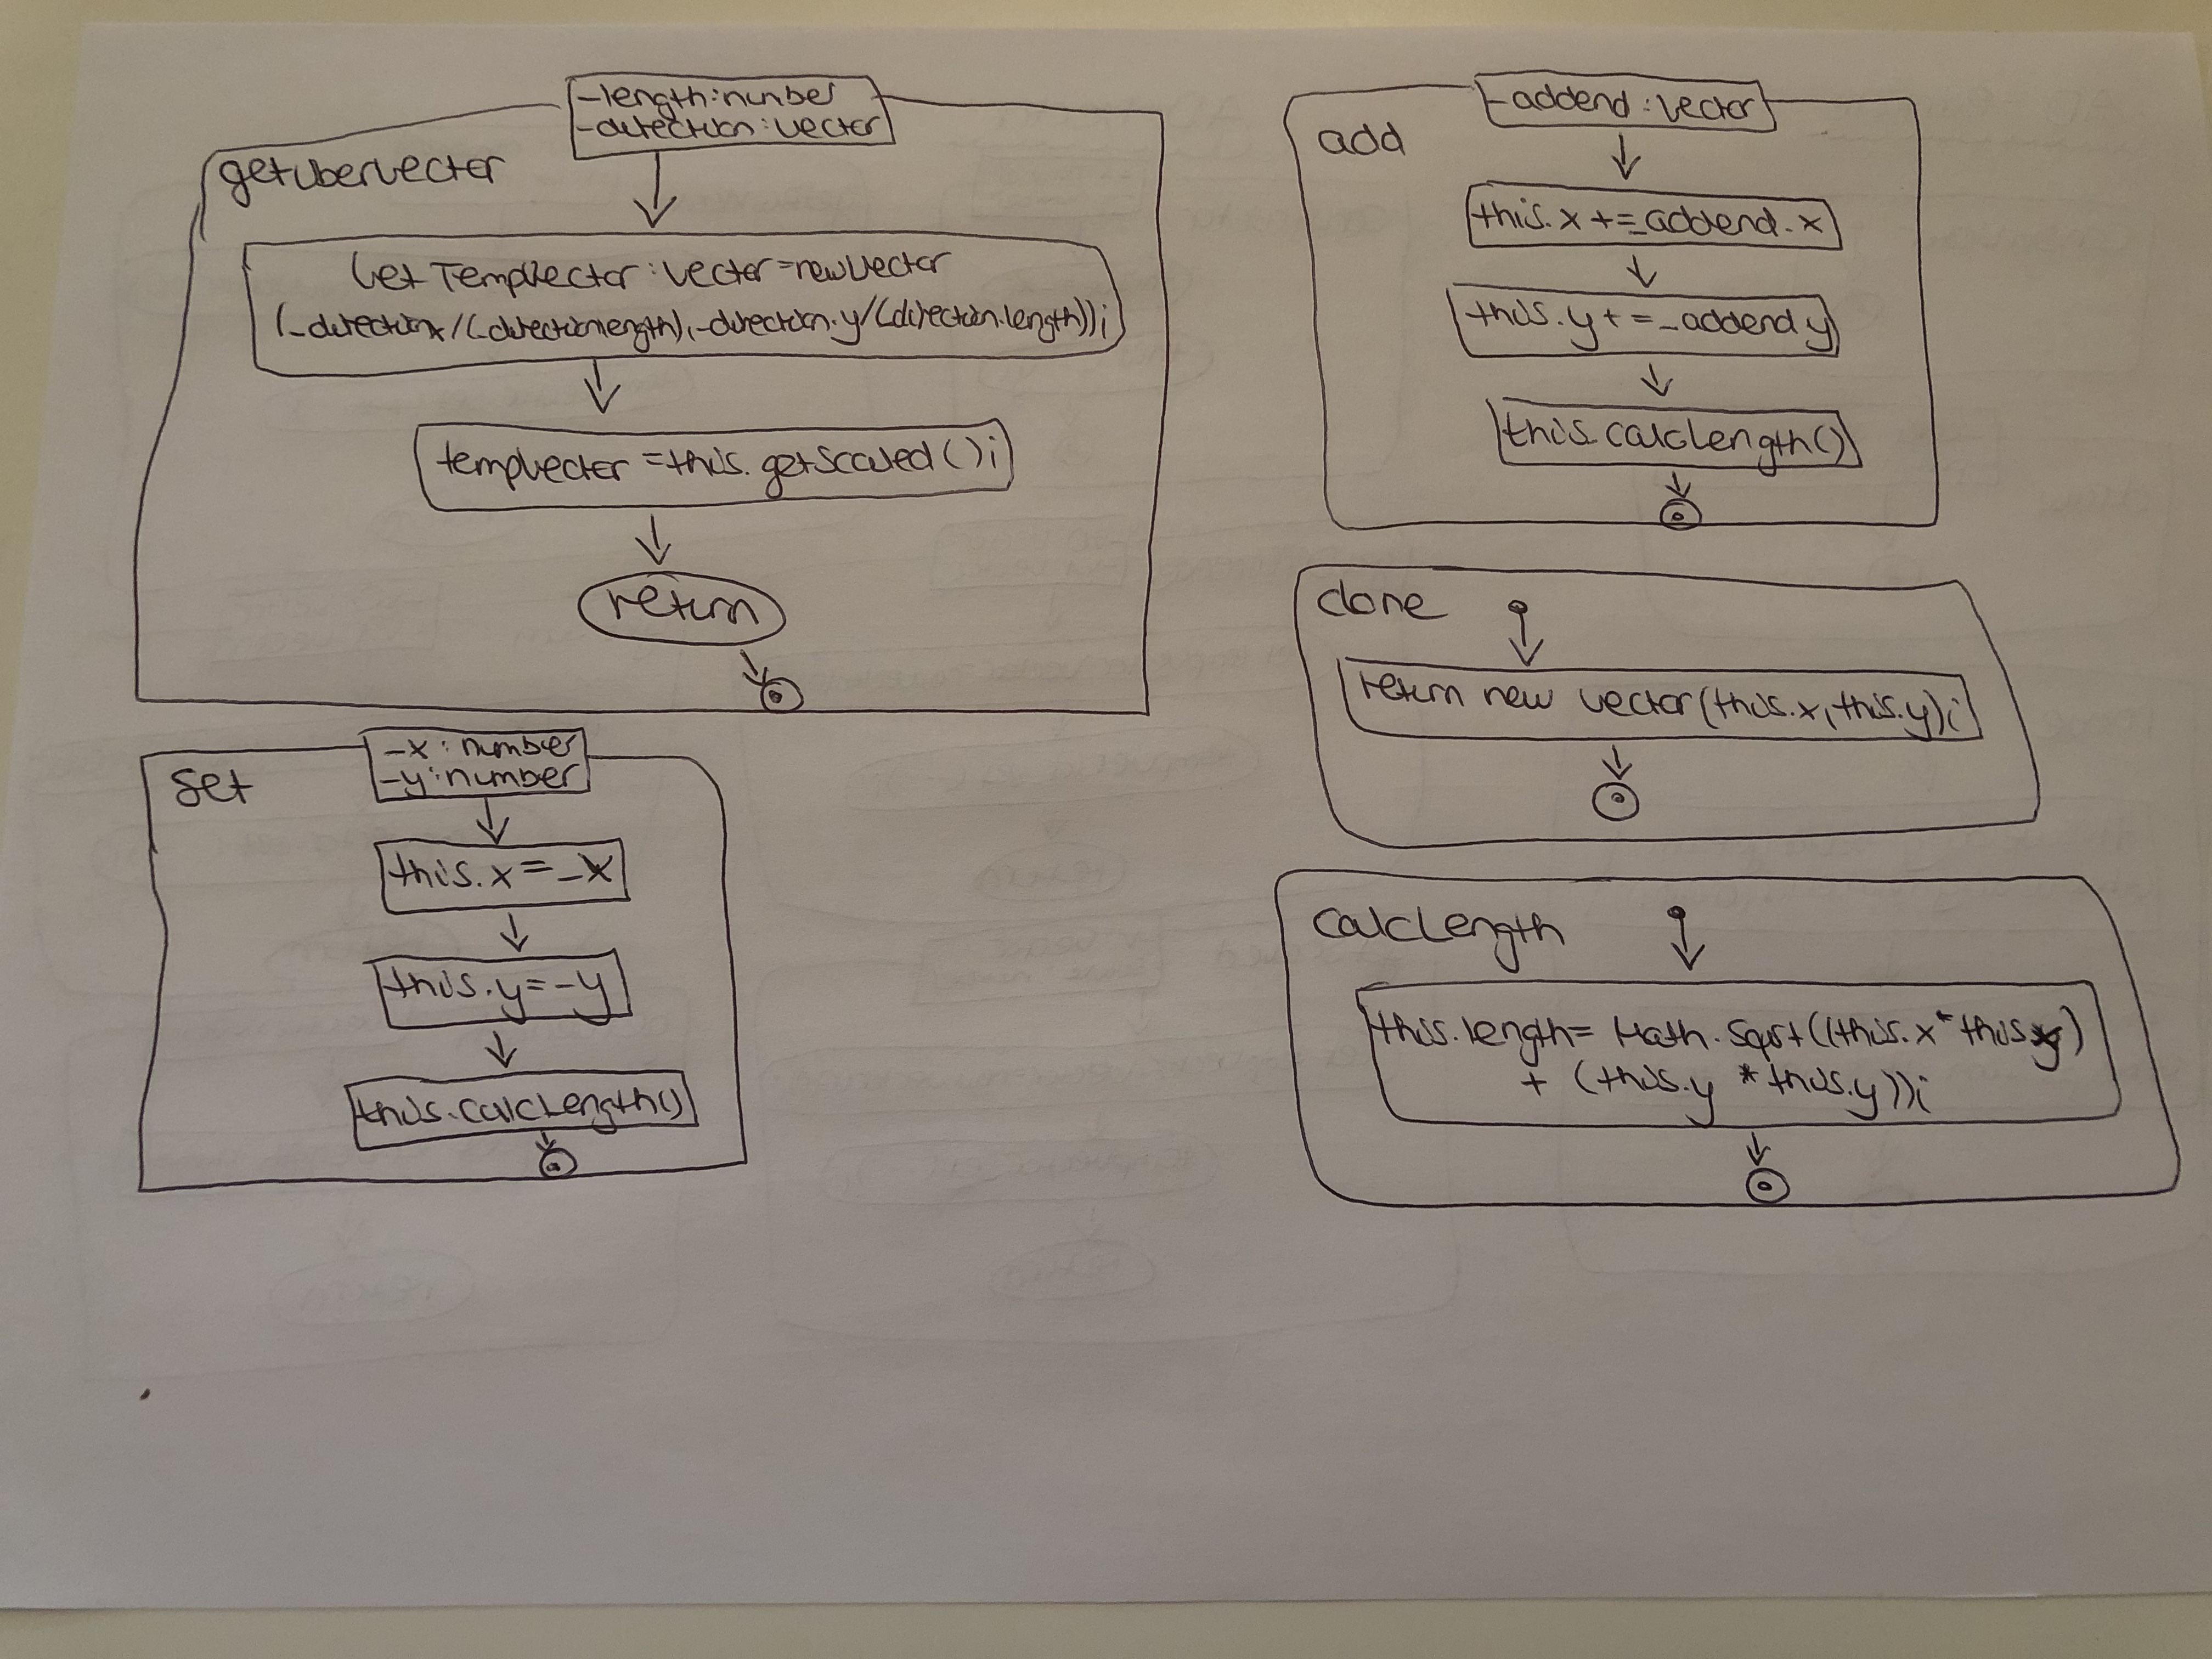 getUberVector
_length:number
_direction:Vector
let TempVector : Vector = new Vector
(_direction.x/(_direction.length),_direction.y/(_direction.length));
tempVector = this.getScaled();
return
Set
_x : number
_y : number
this.x = _x
this.y = _y
this.calcLength()
add
_addend : Vector
this.x += _addend.x
this.y += _addend y
this.calcLength()
clone
return new Vector(this.x, this.y);
calcLength
this.length = Math.sqrt((this.x * this.
+ (this.y * this.y));